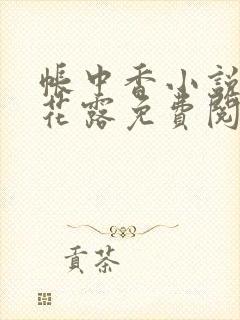 帳中香小說
花露免費閱
貢茶